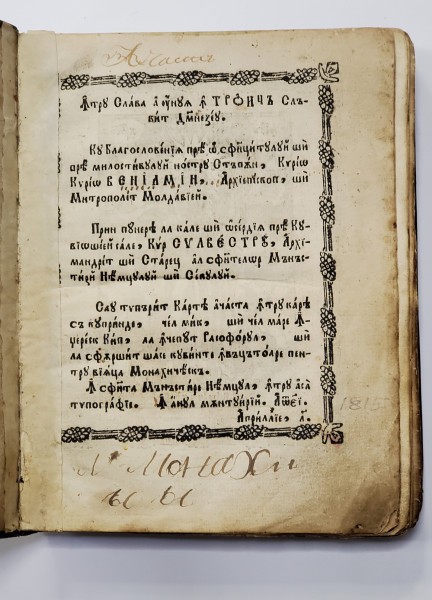 Ꙟтру Слава а оунуꙗ ꙟ ТРОИЧЪ Слъ-
вит Дꙋмнезеꙋ.
Кꙋ Благословенїѧ прѣ ѡсфинцитꙋлꙋй ши
прѣ милостивꙋлꙋй нострꙋ Стъпѫн, Кѵрїѡ
Кѵрїѡ ВЕНІАМІН, Архїепископ, ши
Митрополит Молдавїей.
Прин пꙋнере ла кале ши ѡсѫрдїѧ прѣ Кꙋ-
вїѡшїей сале, Кѵр СІЛВЕСТРꙋ, Архї-
мандрит ши Старец ал сфинтелѡр Мънъс-
тирй Нѣмцꙋлꙋй ши Секꙋлꙋй.
Саꙋ типърит Карте ачаста ꙟтрꙋ каре
съ кꙋпринде, чел мик, ши чел маре ꙟ-
церескъ Кип, ла ꙟчепꙋт Расофорꙋл, ши
ла сфѫршит шасе кꙋвинте ꙟвъцътоаре пен-
трꙋ вїаца Монахичѣскъ.
Ꙟ сфинта Мънъстире Нѣмцꙋл, ꙟтрꙋ аса
типографїе. Ꙟ анꙋл мѫнтꙋирїй. ҂аѡеі.
Априлїе, л.
1815
Монахи